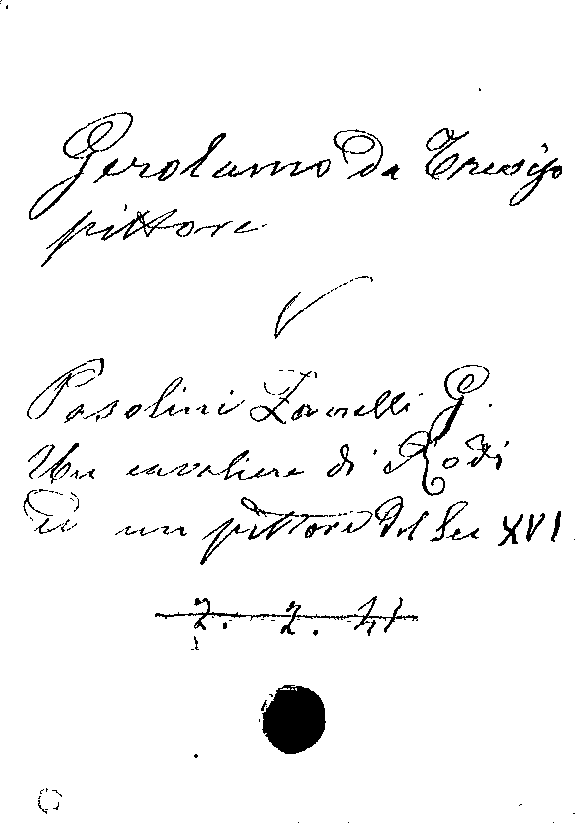 Gerolamo da Trevigi
pittore
Pasolini Zanelli G.
Un cavaliere di Rodi
Ed un pittore del Sec XVI
2. 2. 41